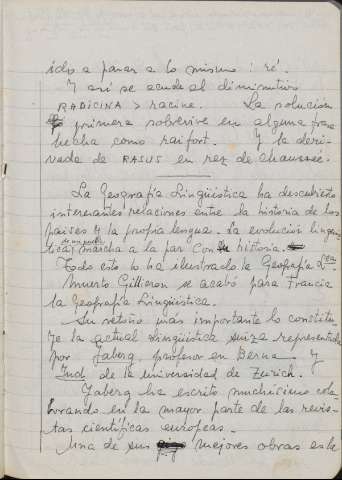 ido a parar a lo mismo: ré.
Y así se acude al diminutivo
RADICINA > racine. La solución
primera sobrevive en alguna frase
hecha como raifort. Y la deri-
vada de RASUS en rez de chaussée.
La Geografía Lingüística ha descubierto
interesantes relaciones entre la historia de los
países y la propia lengua. La evolución lingüís-
de un pueblo
tica marcha a la par con su historia.
Todo esto lo ha ilustrado la Geografía L.ca
Muerto Gilliéron se acabó para Francia
la Geografía Lingüística.
Su retoño más importante lo constitu-
ye la actual Lingüística suiza representada
por Jaberg, profesor en Berna. Y
Jud de la universidad de Zurich.
Jaberg ha escrito muchísimo cola-
borando en la mayor parte de las revis-
tas científicas europeas.
Una de sus mejores obras es la